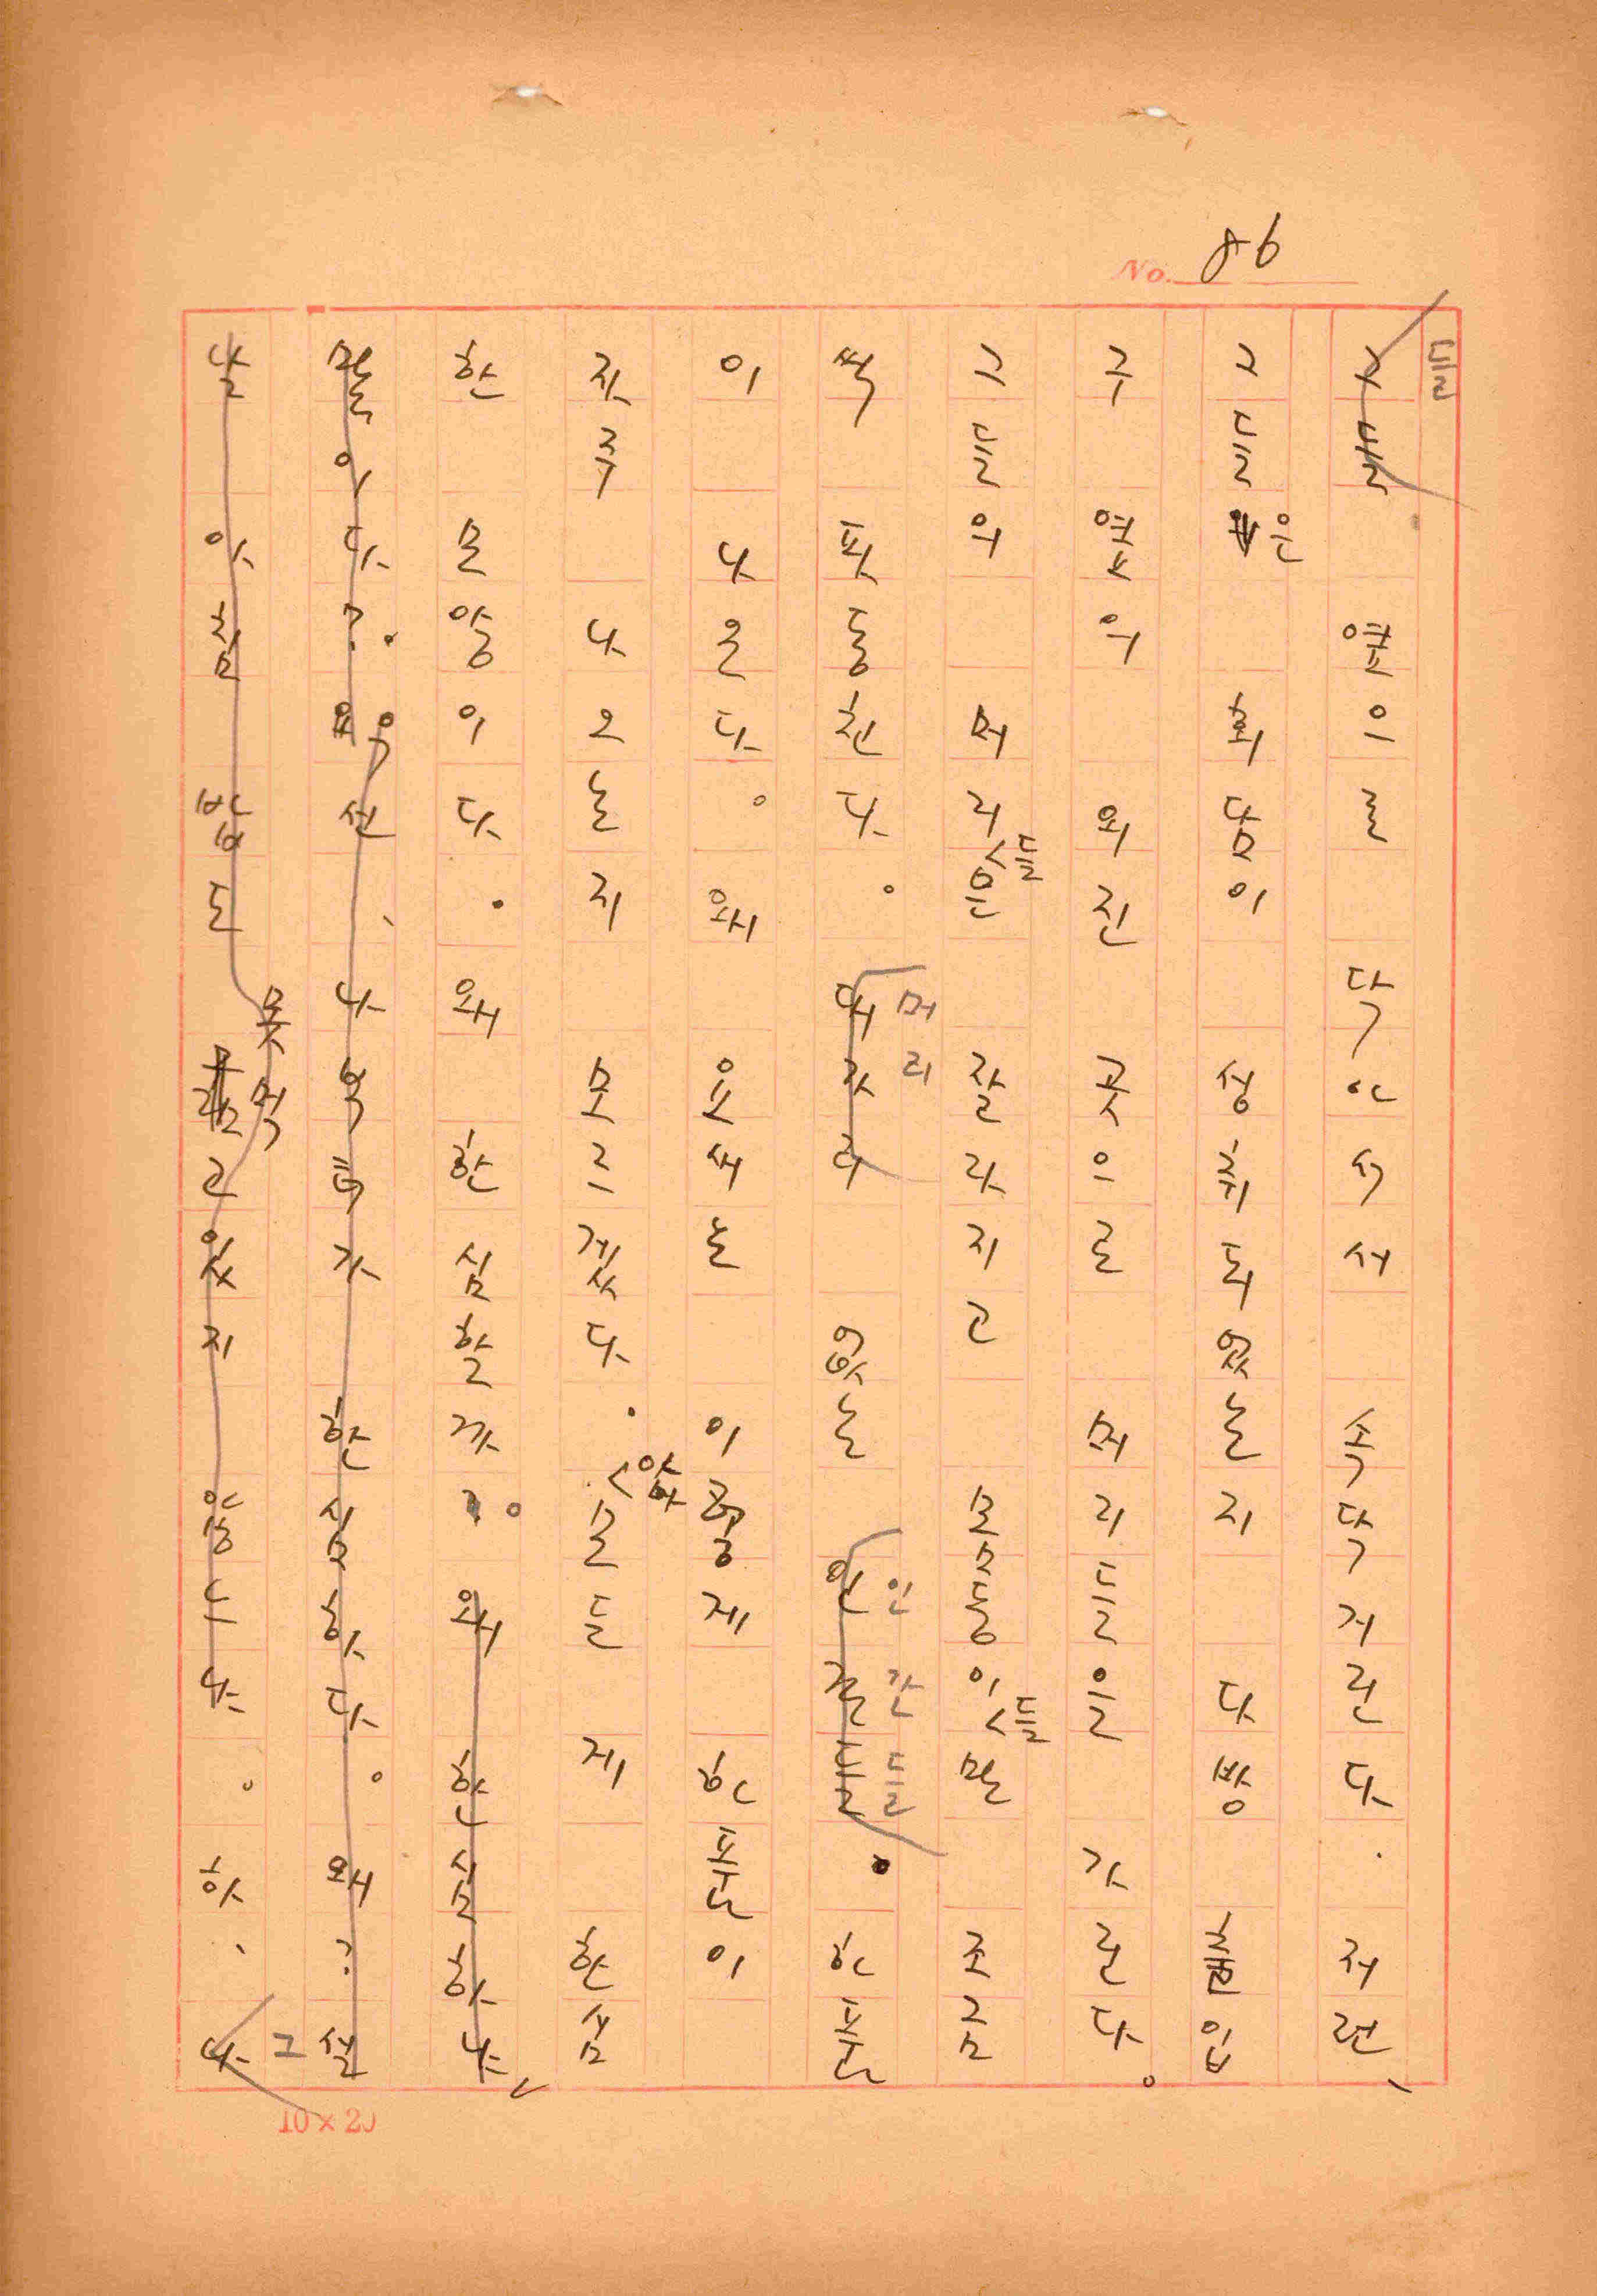 No. 86
들
그들 옆으로 다가서서 속닥거린다. 저런,
그들은 회담이 성취되었는지 다방 출입
구 옆의 외진 곳으로 머리들을 가른다.
그들의 머리들은 잘라지고 몸뚱이들만 조금
씩 퍼둥친다. 대가리 없는 인간들. 한푼
이 나온다. 왜 요새는 이렇게 한푼이
자주 나오는지 모르겠다. 아마 몰들게 한심
한 모양이다. 왜 한심할까? 왜 한심하나,
말이다? 우선, 나부터가 한심하다. 왜? 실
날 아침 밥도 못 먹고 있지 않느냐. 하, 나
머리
인간들
그
10 × 20